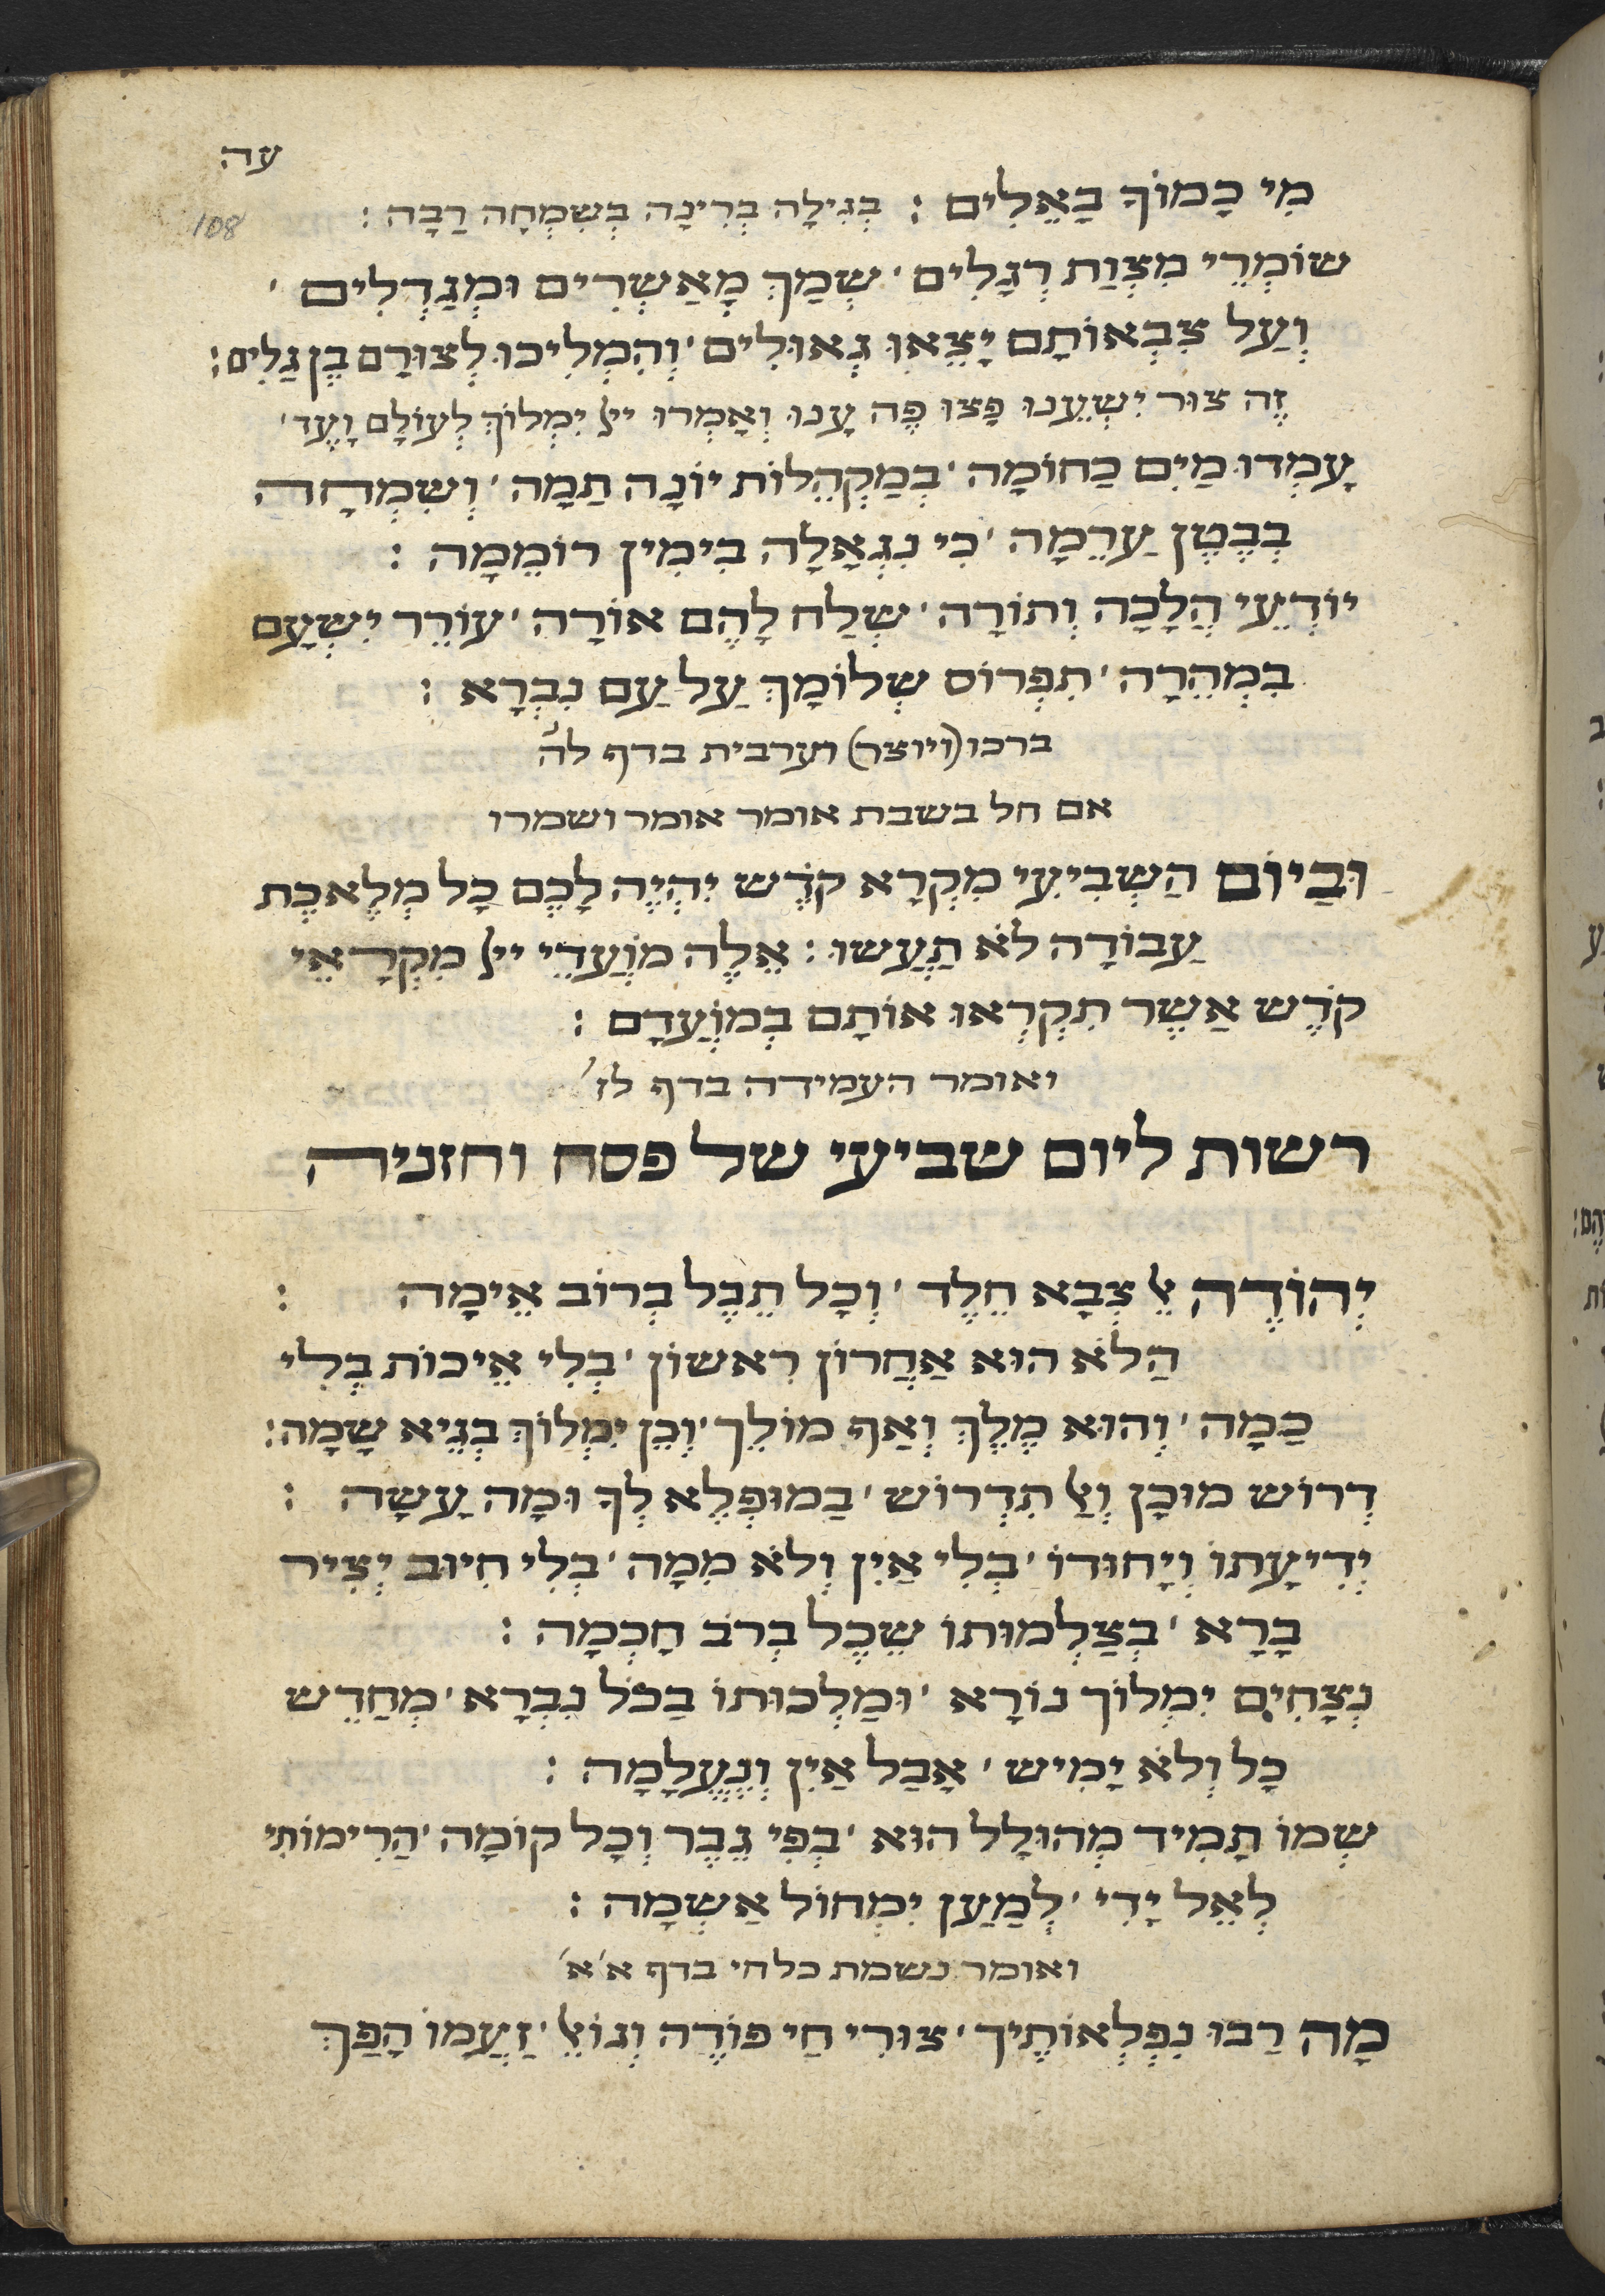 עה
108
מִי כָמוֹךָ בָאֵלִים : בְגִילָה בְרִינָה בְשִמְחָה רַבָה :
שוֹמְרֵי מִצְוַת רְגָלִים ׳ שְמַךְ מְאַשְרִים וּמְגַדְלִים ׳
וְעַל צִבְאוֹתָם יָצְאוּ גְאוּלִים ׳ וְהִמְלִיכוּ לְצוּרָם בֶן גַלִים :
זֶה צוּר יִשְעֵנוּ פָצוּ פֶה עָנוּ וְאָמְרוּ ייָ יִמְלוֹךְ לְעוֹלָם וָעֶד ׳
עָמְדוּ מַיִם כַחוֹמָה ׳ בְמַקְהֵלוֹת יוֹנָה תַמָה ׳ וְשִמְחָה
בְבֶטֶן עַרֵמָה ׳ כִי נִגְאָלָה בִימִין רוֹמֵמָה :
יוֹדְעֵי הֲלָכָה וְתוֹרָה ׳ שְלַח לָהֶם אוֹרָה ׳ עוֹרֵר יִשְעָם
בִמְהֵרָה ׳ תִפְרוֹס שְלוֹמָךְ עַל עַם נִבְרָא :
ברכו (ויוצר) וערבית בדף לה׳
אם חל בשבת אומר אומר ושמרו
וּבַיוֹם הַשְבִיעִי מִקְרָא קֹדֶש יִהְיֶה לָכֶם כָל מְלֶאכֶת
עַבוֹדָה לֹא תַעֲשוּ : אֵלֶה מוֹעֲדֵי ייָ מִקְרָאֵי
קֹדֶש אַשֶר תִקְרְאוּ אוֹתָם בְמוֹעֲדָם :
ואומר העמידה בדף לז׳
רשות ליום שביעי של פסח וחזניה
יְהוֹדֶה אֵל צְבָא חֵלֶד ׳ וְכָל תֵבֶל בְרוֹב אֵימָה :
הַלֹא הוּא אַחֲרוֹן רִאשוֹן ׳ בְלִי אֵיכוּת בְלִי
כַמָה ׳ וְהוּא מֶלֶךְ וְאַף מוֹלֵךְ ׳ וְכֵן יִמְלוֹךְ בְגֵיא שָמָה :
דְרוֹש מוּכָן וְאַל תִדְרוֹש ׳ בַמוּפְלֶא לְךָ וּמָה עָשָה :
יְדִיעָתוֹ וְיָחוּדוֹ ׳ בְלִי אַיִן וְלֹא מִמָה ׳ בְלִי חִיוּב יְצִיר
בָרָא ׳ בְצַלְמוּתוֹ שֵכֶל בְרֹב חָכְמָה :
נְצָחִים יִמְלוֹךְ נוֹרָא ׳ וּמַלְכוּתוֹ בַכֹל נִבְרָא ׳ מְחַדֵש
כָל וְלֹא יָמִיש ׳ אָבַל אַיִן וְנֶעֱלָמָה :
שְמוֹ תָמִיד מְהוּלָל הוּא ׳ בְפִי גֶבֶר וְכָל קוֹמָה ׳ הַרִימוֹתִי
לְאֵל יָדִי ׳ לְמַעַן יִמְחוֹל אַשְמָה :
ואומר נשמת כל חי בדף א׳א׳
מָה רַבוּ נִפְלְאוֹתֶיךָ ׳ צוּרִי חַי פּוֹדֶה וְגוֹאֵל ׳ זַעֲמוֹ הָפַךְ